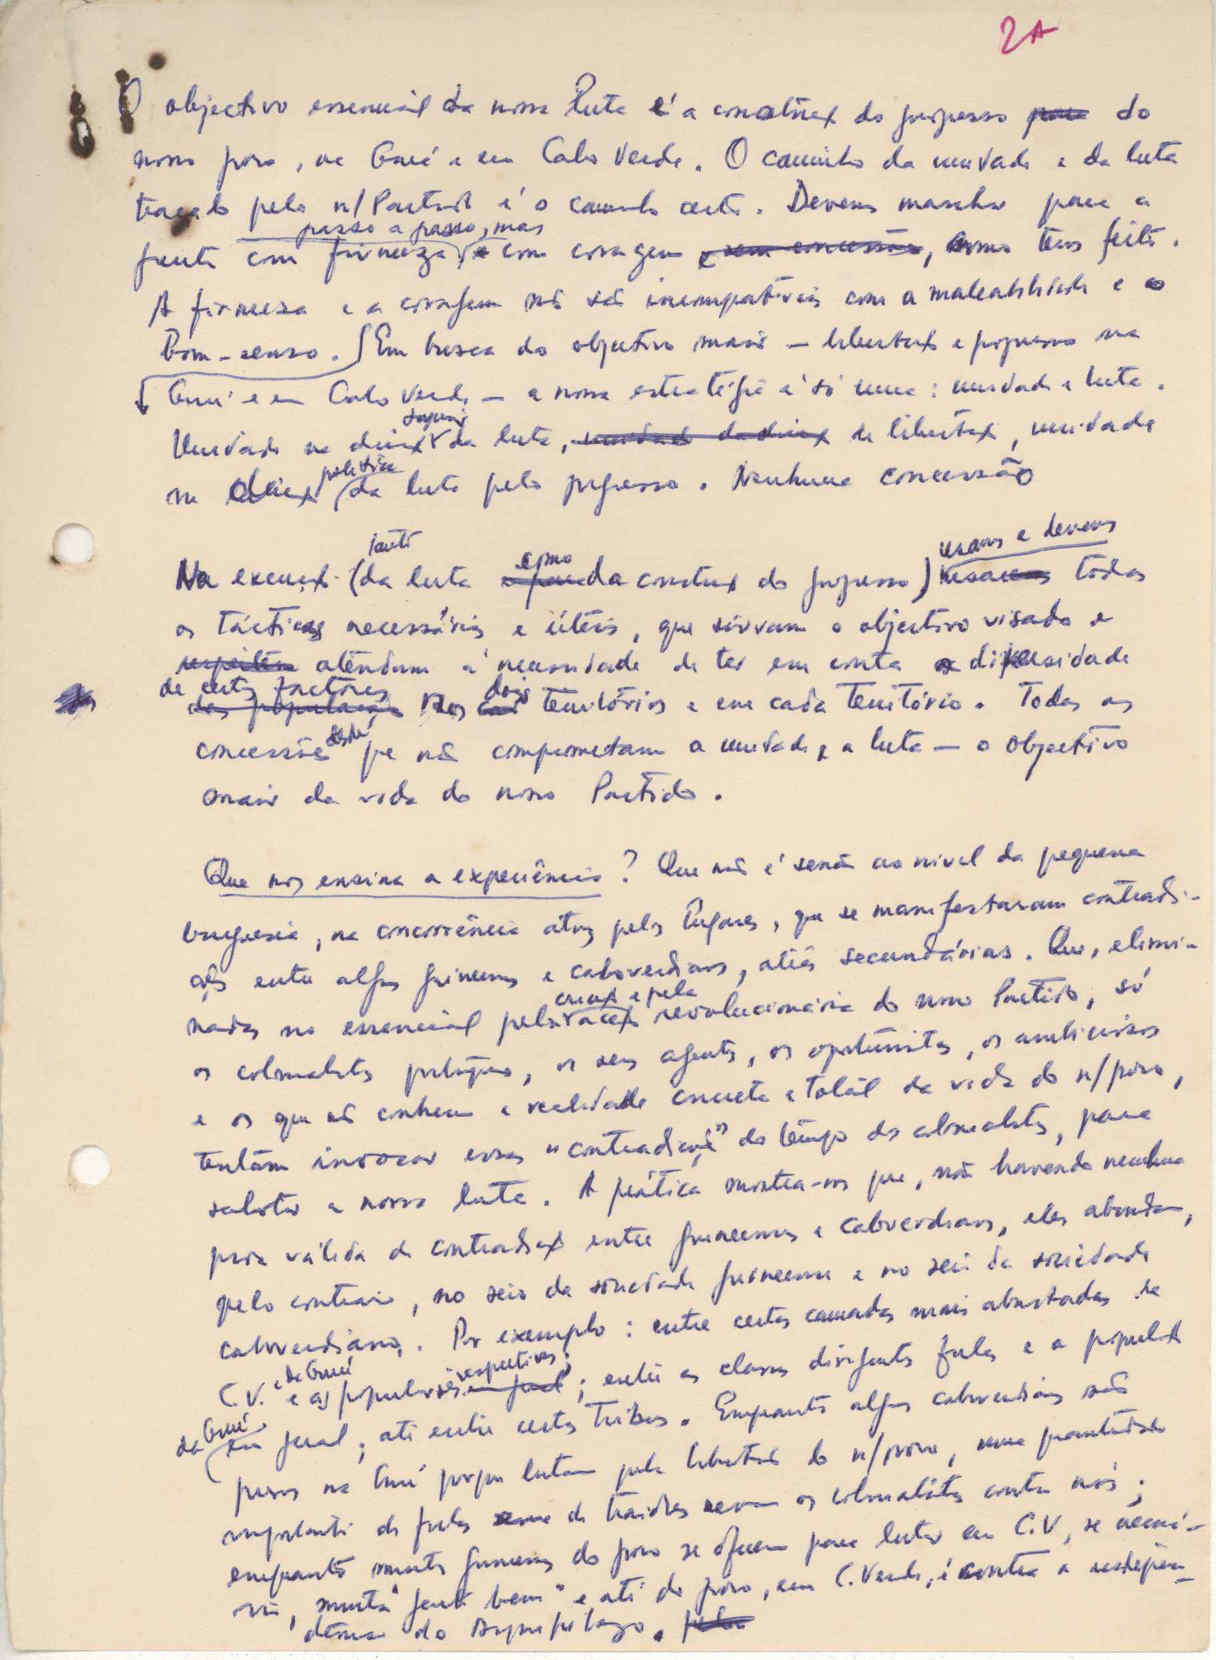 2A
O objectivo essencial da nossa luta é a construç do progresso do
nosso povo, na Guiné e em Cabo Verde. O caminho da unidade e da luta
traçado pelo n/Partido é o caminho certo. Devemos marchar para a
passo a passo, mas
frente com firmeza e com coragem, como temos feito.
A firmeza e a coragem não são incompatíveis com a maleabilidade e o
Bom-senso. Em busca do objectivo maior — libertaç e progresso na
Guiné e em Cabo Verde — a nossa estratégia é só uma: unidade e luta.
Unidade na direcç da luta, de libertaç, unidade
política
na direcç da luta pelo progresso. Nenhuma concessão
tanto
como
usamos e devemos
Na execuç (da luta da construç do progresso) todas
as tácticas necessárias e úteis, que sirvam o objectivo visado e
atendam à necessidade de ter em conta a diversidade
de certos factores nos dois territórios e em cada território. Todas as
concessões desde que não comprometam a unidade e a luta — o objectivo
maior da vida do nosso Partido.
Que nos ensina a experiência? Que não é senão ao nível da pequena
burguesia, na concorrência atroz pelos lugares, que se manifestaram contradi-
ções entre alguns guineenses e caboverdianos, aliás secundárias. Que, elimi-
criaç e pela
nadas no essencial pela acç revolucionária do nosso Partido, só
os colonialistas portugueses, os seus agentes, os oportunistas, os ambiciosos
e os que não conhecem a realidade concreta e total da vida do n/povo,
tentam invocar essas "contradições" do tempo dos colonialistas, para
sabotar a nossa luta. A prática mostra-nos que, não havendo nenhuma
prova válida de contradiç entre guineenses e caboverdianos, elas abundam,
pelo contrário, no seio da sociedade guineense e no seio da sociedade
caboverdiana. Por exemplo: entre certas camadas mais abastadas de
da Guiné
respectivas
C.V. e as populações; entre as classes dirigentes fulas e a populaç
da Guiné
em geral; até entre certas tribos. Enquanto alguns caboverdianos são
presos na Guiné porque lutam pela libertaç do n/povo, uma quantidade
importante de fulas de traidores servem os colonialistas contra nós;
enquanto muitos guineenses do povo se oferecem para lutar em C.V., se necessá-
rio, muita "gente bem" e até do povo, em C. Verde, é contra a indepen-
dência do Arquipélago.